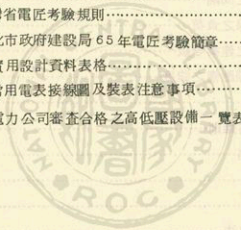 省電匠考驗規則
北市政府建設局65年電匠考驗簡章
實用設計資料表格
常用電表接線圖及裝表注意事項
電力公司審查合格之高低壓設備一覽表
NATIONAL
LIBRARY
R O C